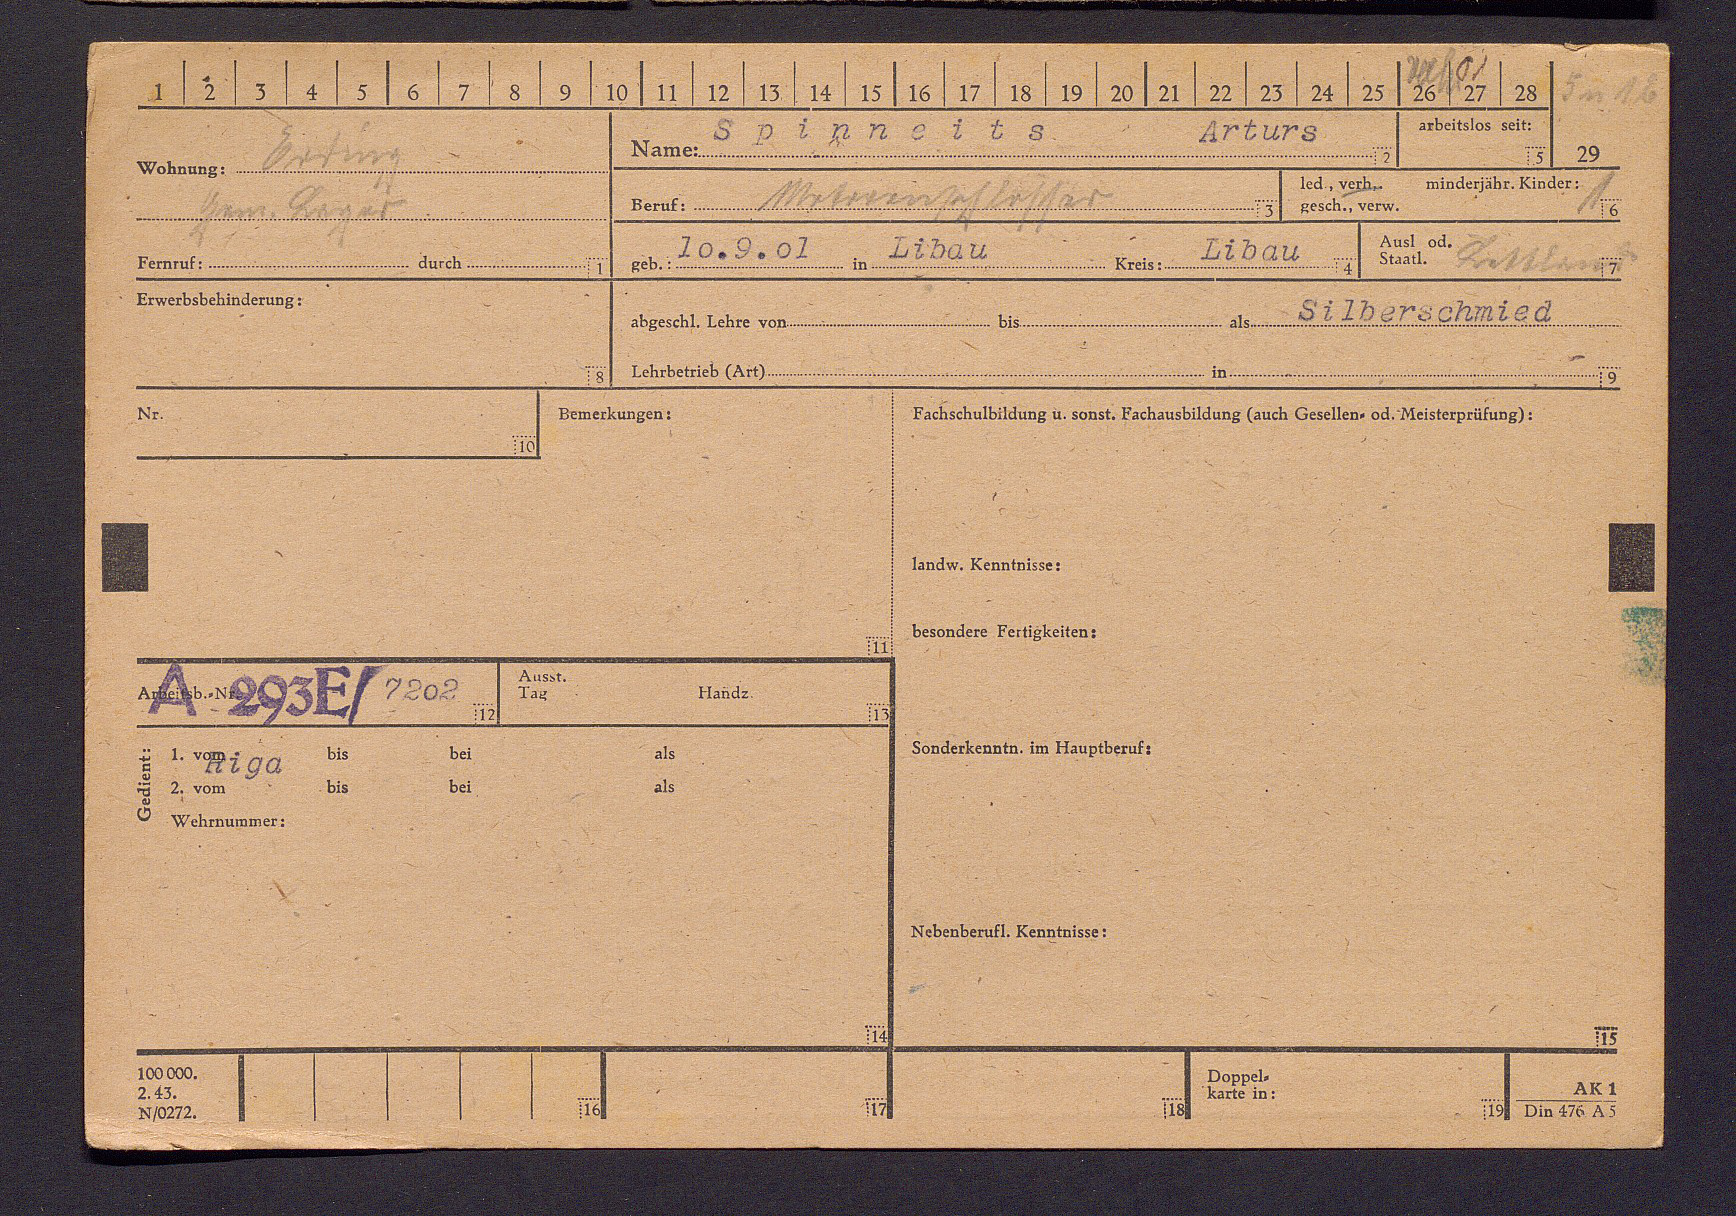 1 2 3 4 5 6 7 8 9 10 11 12 13 14 15 16 17 18 19 20 21 22 23 24 25 26 27 28
01
Wohnung: Erding
Gem. Lager
Fernruf: durch 1
Name: Spinneits Arturs 2
arbeitslos seit: 5
29
Beruf: Motorenschlosser 3
led., verh., minderjähr. Kinder: 1
gesch., verw. 6
geb.: 10.9.01 in Libau Kreis: Libau 4
Ausl od.
Staatl. Lettland 7
Erwerbsbehinderung:
8
abgeschl. Lehre von bis als Silberschmied
Lehrbetrieb (Art) in 9
Nr.
10
Bemerkungen:
11
Fachschulbildung u. sonst. Fachausbildung (auch Gesellen- od. Meisterprüfung):
landw. Kenntnisse:
besondere Fertigkeiten:
Arbeitsb.-Nr. A 293E/ 7202 12
Ausst.
Tag Handz. 13
Gedient:
1. vom bis bei als
Riga
2. vom bis bei als
Wehrnummer:
14
Sonderkenntn. im Hauptberuf:
Nebenberufl. Kenntnisse:
15
100 000.
2. 43.
N/0272.
16
17
18
Doppel-
karte in:
19
AK 1
Din 476 A 5